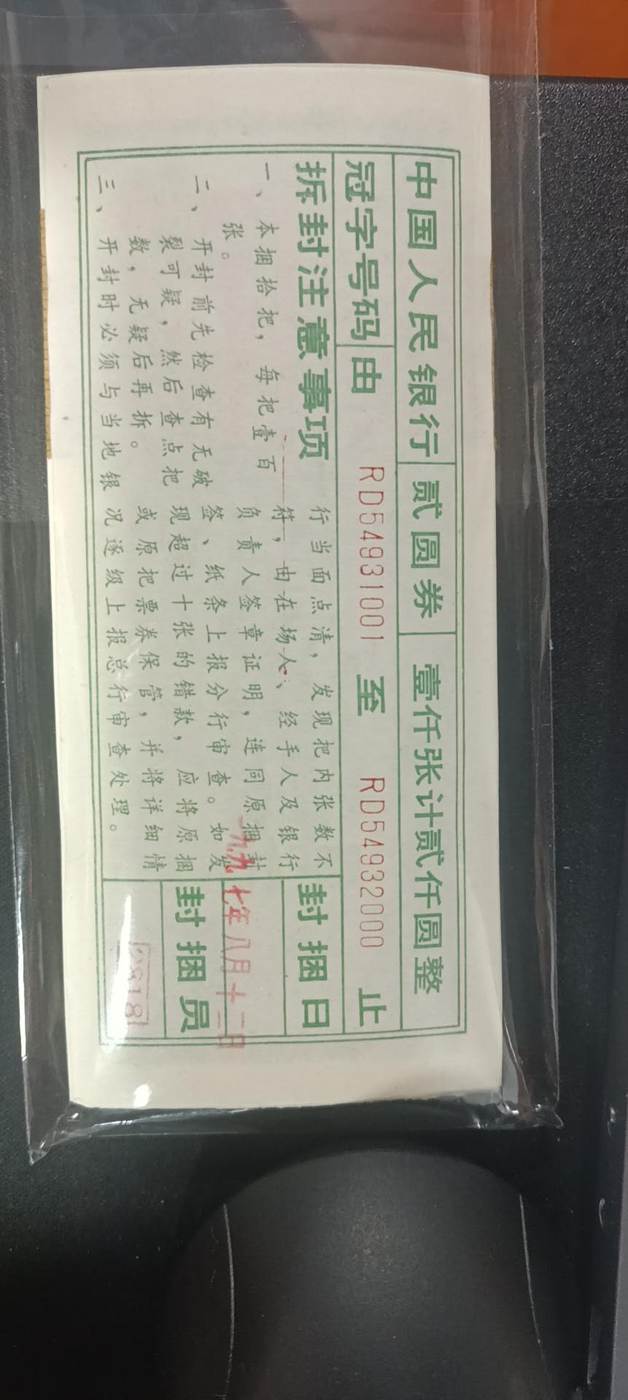 中国人民银行 贰圆券 壹仟张计贰仟圆整
冠字号码 由 RD54931001 至 RD54932000 止
拆封注意事项
一、本捆拾把，每把壹百
张。
二、开封前先检查有无破
裂可疑，然后查点把
数，无疑后再拆。
三、开封时必须与当地银
行当面点清，发现把内张数不
符，由在场人、经手人及银行
负责人签章证明，连同原捆封
签、纸条上报分行审查。如发
现超过十张的错款，应将原捆
或原把票券保管，并将详细情
况逐级上报总行审查处理。
封捆日
一九九七年八月十二日
封捆员